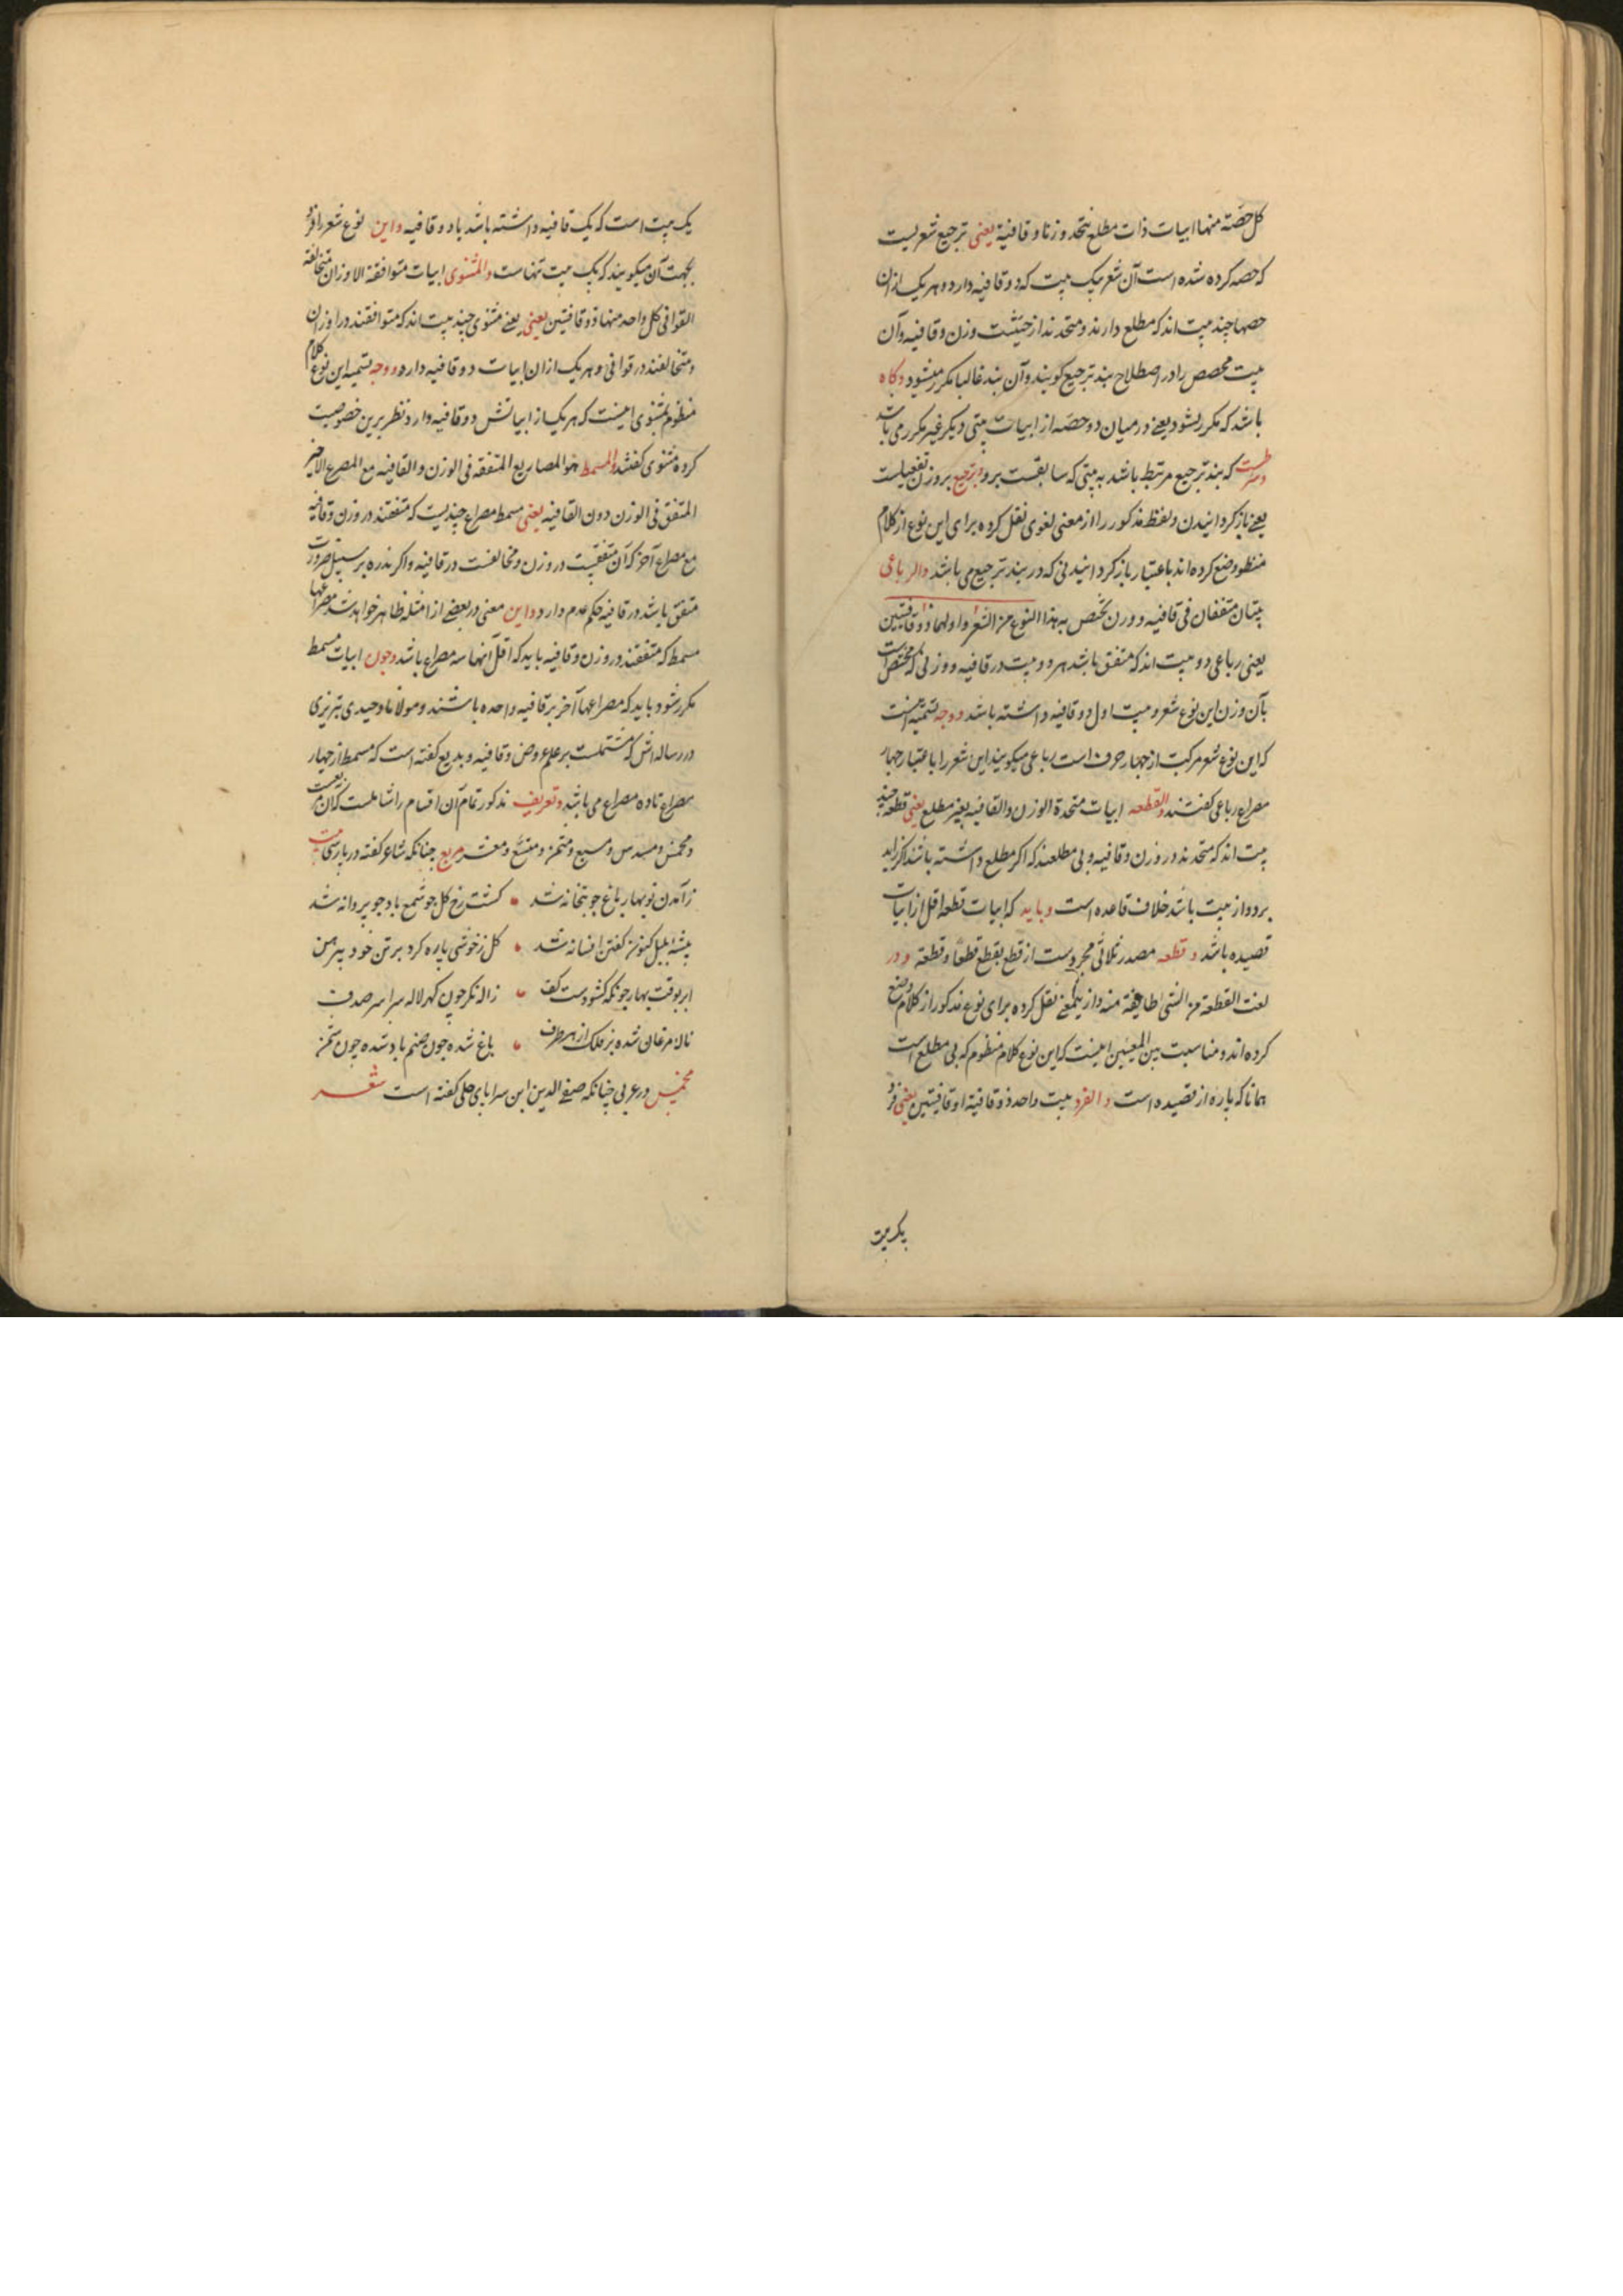 کل حصّة منها ابیات ذات مطلع تتحد وزنا و قافیة یعنی ترجیع شعریست
که حصه کرده شده است آن شعر بیک بیت که دو قافیه دارد و هر یک ازان
حصها چند بیت اند که مطلع دارند و متحدند از حیثیت وزن و قافیه و آن
بیت مخصص را در اصطلاح بند ترجیع گویند و آن بند غالبا مکرر میشود و کاه
باشد که مکرر نشود یعنی در میان دو حصّه از ابیات بیتی دیگر غیر مکرر می باشد
و شرطست که بند ترجیع مرتبط باشد به بیتی که سابقست برو و ترجیع بر وزن تفعیلست
یعنی باز کردانیدن و لفظ مذکور را از معنی لغوی نقل کرده برای این نوع از کلام
منظوم وضع کرده اند باعتبار باز کردانیدنی که در بند ترجیع می باشد والرباعی
بیتان متفقان فی قافیه و وزن مختص بهذا النوع من الشعر و اولهما ذو قافیتین
یعنی رباعی دو بیت اند که متفق باشد هر دو بیت در قافیه و وزنی که مختص است
بآن وزن این نوع شعر و بیت اول دو قافیه داشته باشد و وجه تسمیه آنست
که این نوع شعر مرکبت از چهار حرف است رباعی میکویند این شعر را باعتبار چهار
مصراع رباعی کفتند والقطعه ابیات متحدة الوزن والقافیه بغیر مطلع یعنی قطعه چند
بیت اند که متحدند در وزن و قافیه و بی مطلعند که اکر مطلع داشته باشند اکر زاید
بر دواز بیت باشد خلاف قاعده است و باید که ابیات قطعه اقل از ابیات
قصیده باشد و قطعه مصدر ثلاثی مجردست از قطع یقطع قطعا و قطعة و در
لغت القطعة من الشی طایفة منه و از ینمعنی نقل کرده برای نوع مذکور از کلام وضع
کرده اند و مناسبت بین المعنیین اینست که این نوع کلام منظوم که بی مطلع است
همانا که پاره از قصیده است والفرد بیت واحد ذو قافیة او قافیتین یعنی فرد
یک بیت
یک بیت است که یک قافیه داشته باشد یا دو قافیه و این نوع شعر را فرد
بجهت آن میکویند که یک بیت تنهاست والمثنوی ابیات متوافقة الاوزان متخالفة
القوافی کل واحد منها ذو قافیتین یعنی یعنی مثنوی چند بیت اند که متوافقند در اوزان
و متخالفند در قوافی و هر یک از ان ابیات دو قافیه دارد و وجه تسمیه این نوع کلام
منظوم بمثنوی اینست که هر یک از ابیاتش دو قافیه دارد نظر برین خصوصیت
کرده مثنوی کفتند والمسمط هو المصاریع المتفقه فی الوزن والقافیه مع المصرع الاخیر
المتفق فی الوزن دون القافیه یعنی مسمط مصراع چندیست که متفقند در وزن و قافیه
مع مصراع آخر که آن متفقست در وزن و مخالفست در قافیه و اکر ندره بر سبیل ضرورت
متفق باشد در قافیه حکم عدم دارد و این معنی در بعضی از امثله ظاهر خواهد شد مصراعها
مسمط که متفقند در وزن و قافیه باید که اقل آنها سه مصراع باشد و چون ابیات مسمط
مکرر شود باید که مصراعها آخر بر قافیه واحده باشند و مولانا وحیدی تبریزی
در رساله اش که مشتملست بر علم عروض و قافیه و بدیع کفته است که مسمط از چهار
مصراع تا ده مصراع می باشد و تعریف مذکور تمام آن اقسام را شاملست که آن مربعست
و مخمس و مسدس و مسبع و مثمن و متسع و معشر مربع چنانکه شاعر کفته در پارسی بیت
ز آمدن نوبهار باغ چو بتخانه شد • کشت رخ کل چو شمع باد چو پروانه شد
پیشه بلبل کنون کفتن افسانه شد • کل ز خوشی پاره کرد بر تن خود پیرهن
ابر بوقت بهار چونکه کشودست کف • ژاله نکر چون کهر لاله سراسر صدف
نالۀ مرغان شده بر فلک از هر طرف • باغ شده چون صنم باد شده چون شمن
مخمس در عربی چنانکه صفی الدین ابن سرایای حلی کفته است شعر